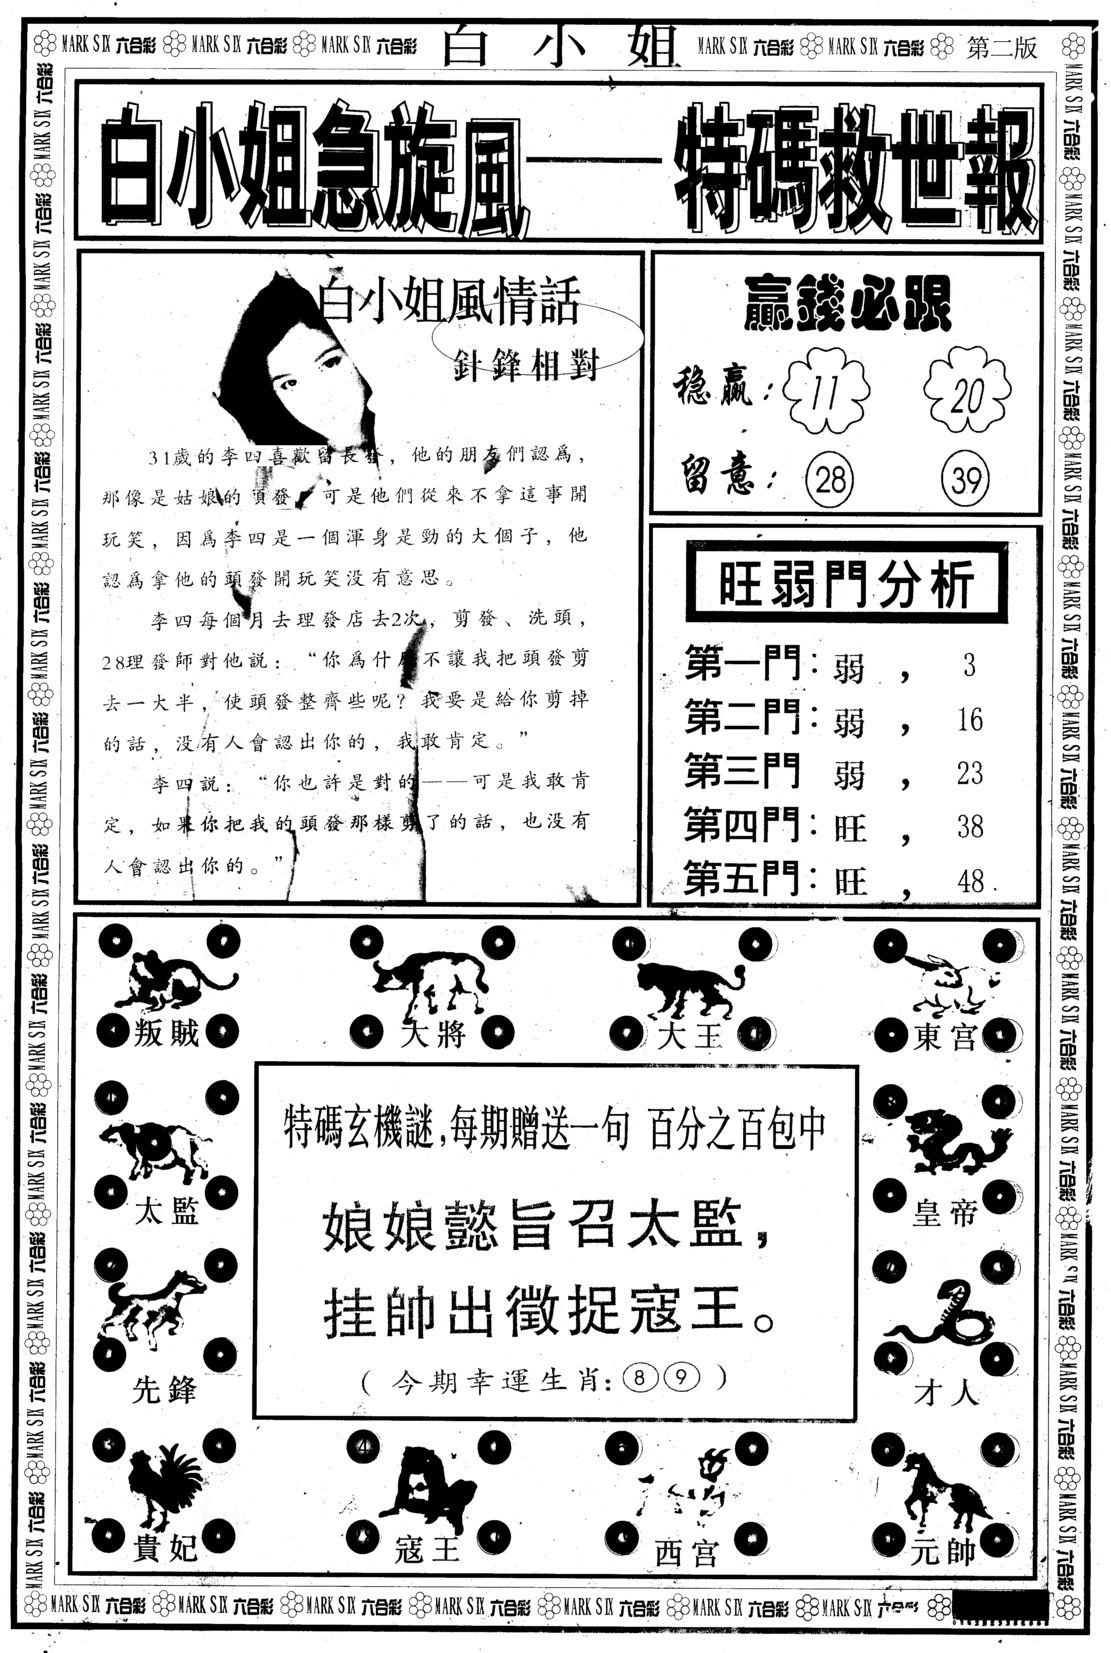 MARK SIX 六合彩 MARK SIX 六合彩 MARK SIX 六合彩 白小姐 MARK SIX 六合彩 MARK SIX 六合彩 第二版
白小姐急旋風——特碼救世報
白小姐風情話
針鋒相對
31歲的李四喜歡留長發，他的朋友們認爲，
那像是姑娘的頭發。可是他們從來不拿這事開
玩笑，因爲李四是一個渾身是勁的大個子，他
認爲拿他的頭發開玩笑没有意思。
李四每個月去理發店去2次，剪發、洗頭，
28理發師對他説：“你爲什麽不讓我把頭發剪
去一大半，使頭發整齊些呢？我要是給你剪掉
的話，没有人會認出你的，我敢肯定。”
李四説：“你也許是對的——可是我敢肯
定，如果你把我的頭發那樣剪了的話，也没有
人會認出你的。”
贏錢必跟
稳赢：11 20
留意：28 39
旺弱門分析
第一門：弱，3
第二門：弱，16
第三門 弱，23
第四門：旺，38
第五門：旺，48
叛賊 大將 大王 東宫
太監
皇帝
特碼玄機謎，每期贈送一句 百分之百包中
娘娘懿旨召太監，
挂帥出徵捉寇王。
（今期幸運生肖：⑧⑨）
先鋒
才人
貴妃 寇王 西宫 元帥
MARK SIX 六合彩 MARK SIX 六合彩 MARK SIX 六合彩 MARK SIX 六合彩 MARK SIX 六合彩 MARK SIX 六合彩 MARK SIX 六合彩